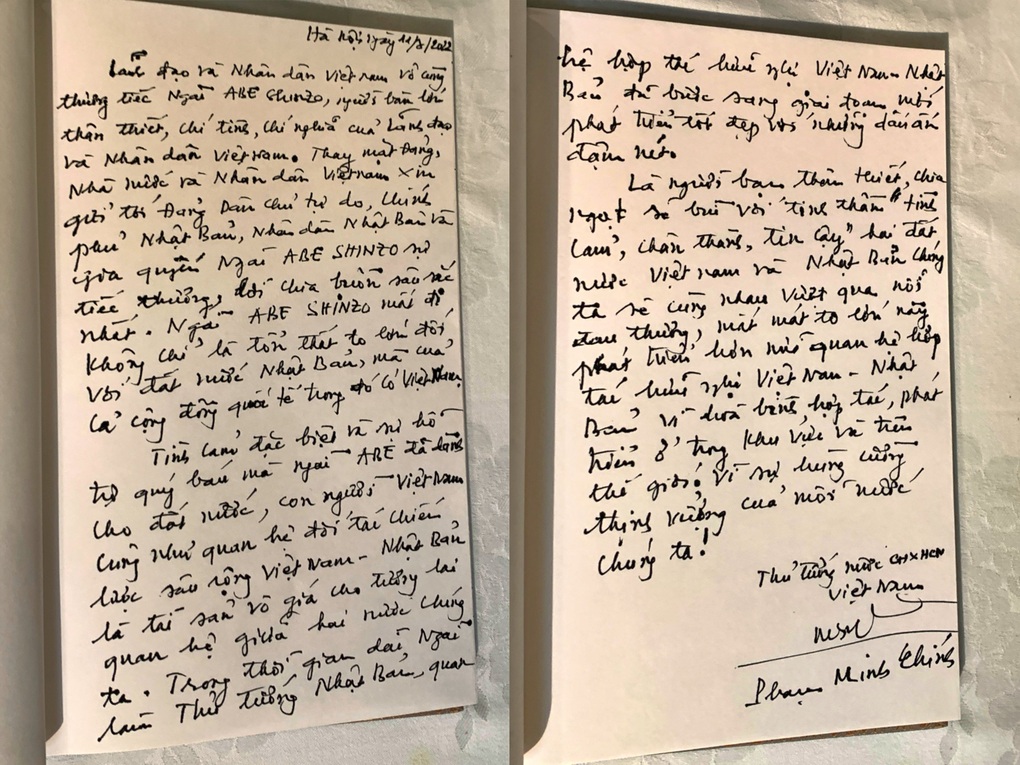 Hà Nội ngày 11/7/2022
Lãnh đạo và Nhân dân Việt Nam vô cùng
thương tiếc Ngài ABE Shinzo, người bạn lớn
thân thiết, chí tình, chí nghĩa của Lãnh đạo
và Nhân dân Việt Nam. Thay mặt Đảng,
Nhà nước và Nhân dân Việt Nam xin
gửi tới Đảng Dân chủ tự do, Chính
phủ Nhật Bản, Nhân dân Nhật Bản và
gia quyến Ngài ABE SHINZO sự
tiếc thương, lời chia buồn sâu sắc
nhất. Ngài ABE SHINZO mất đi
không chỉ là tổn thất to lớn đối
với đất nước Nhật Bản, mà của
cả cộng đồng quốc tế trong đó có Việt Nam.
Tình cảm đặc biệt và sự hỗ
trợ quý báu mà ngài ABE đã dành
cho đất nước, con người Việt Nam
cũng như quan hệ đối tác chiến
lược sâu rộng Việt Nam - Nhật Bản
là tài sản vô giá cho tương lai
quan hệ giữa hai nước chúng
ta. Trong thời gian dài, Ngài
làm Thủ tướng Nhật Bản, quan
hệ hợp tác hữu nghị Việt Nam - Nhật
Bản đã bước sang giai đoạn mới
phát triển tốt đẹp với những dấu ấn
đậm nét.
Là người bạn thân thiết, chia
ngọt sẻ bùi với tinh thần "tình
cảm, chân thành, tin cậy" hai đất
nước Việt Nam và Nhật Bản chúng
ta sẽ cùng nhau vượt qua nỗi
đau thương, mất mát to lớn này
phát triển hơn nữa quan hệ hợp
tác hữu nghị Việt Nam - Nhật
Bản vì hoà bình, hợp tác, phát
triển ở trong khu vực và trên
thế giới; Vì sự hùng cường
thịnh vượng của mỗi nước
chúng ta!
Thủ tướng nước CHXHCN
Việt Nam
Phạm Minh Chính